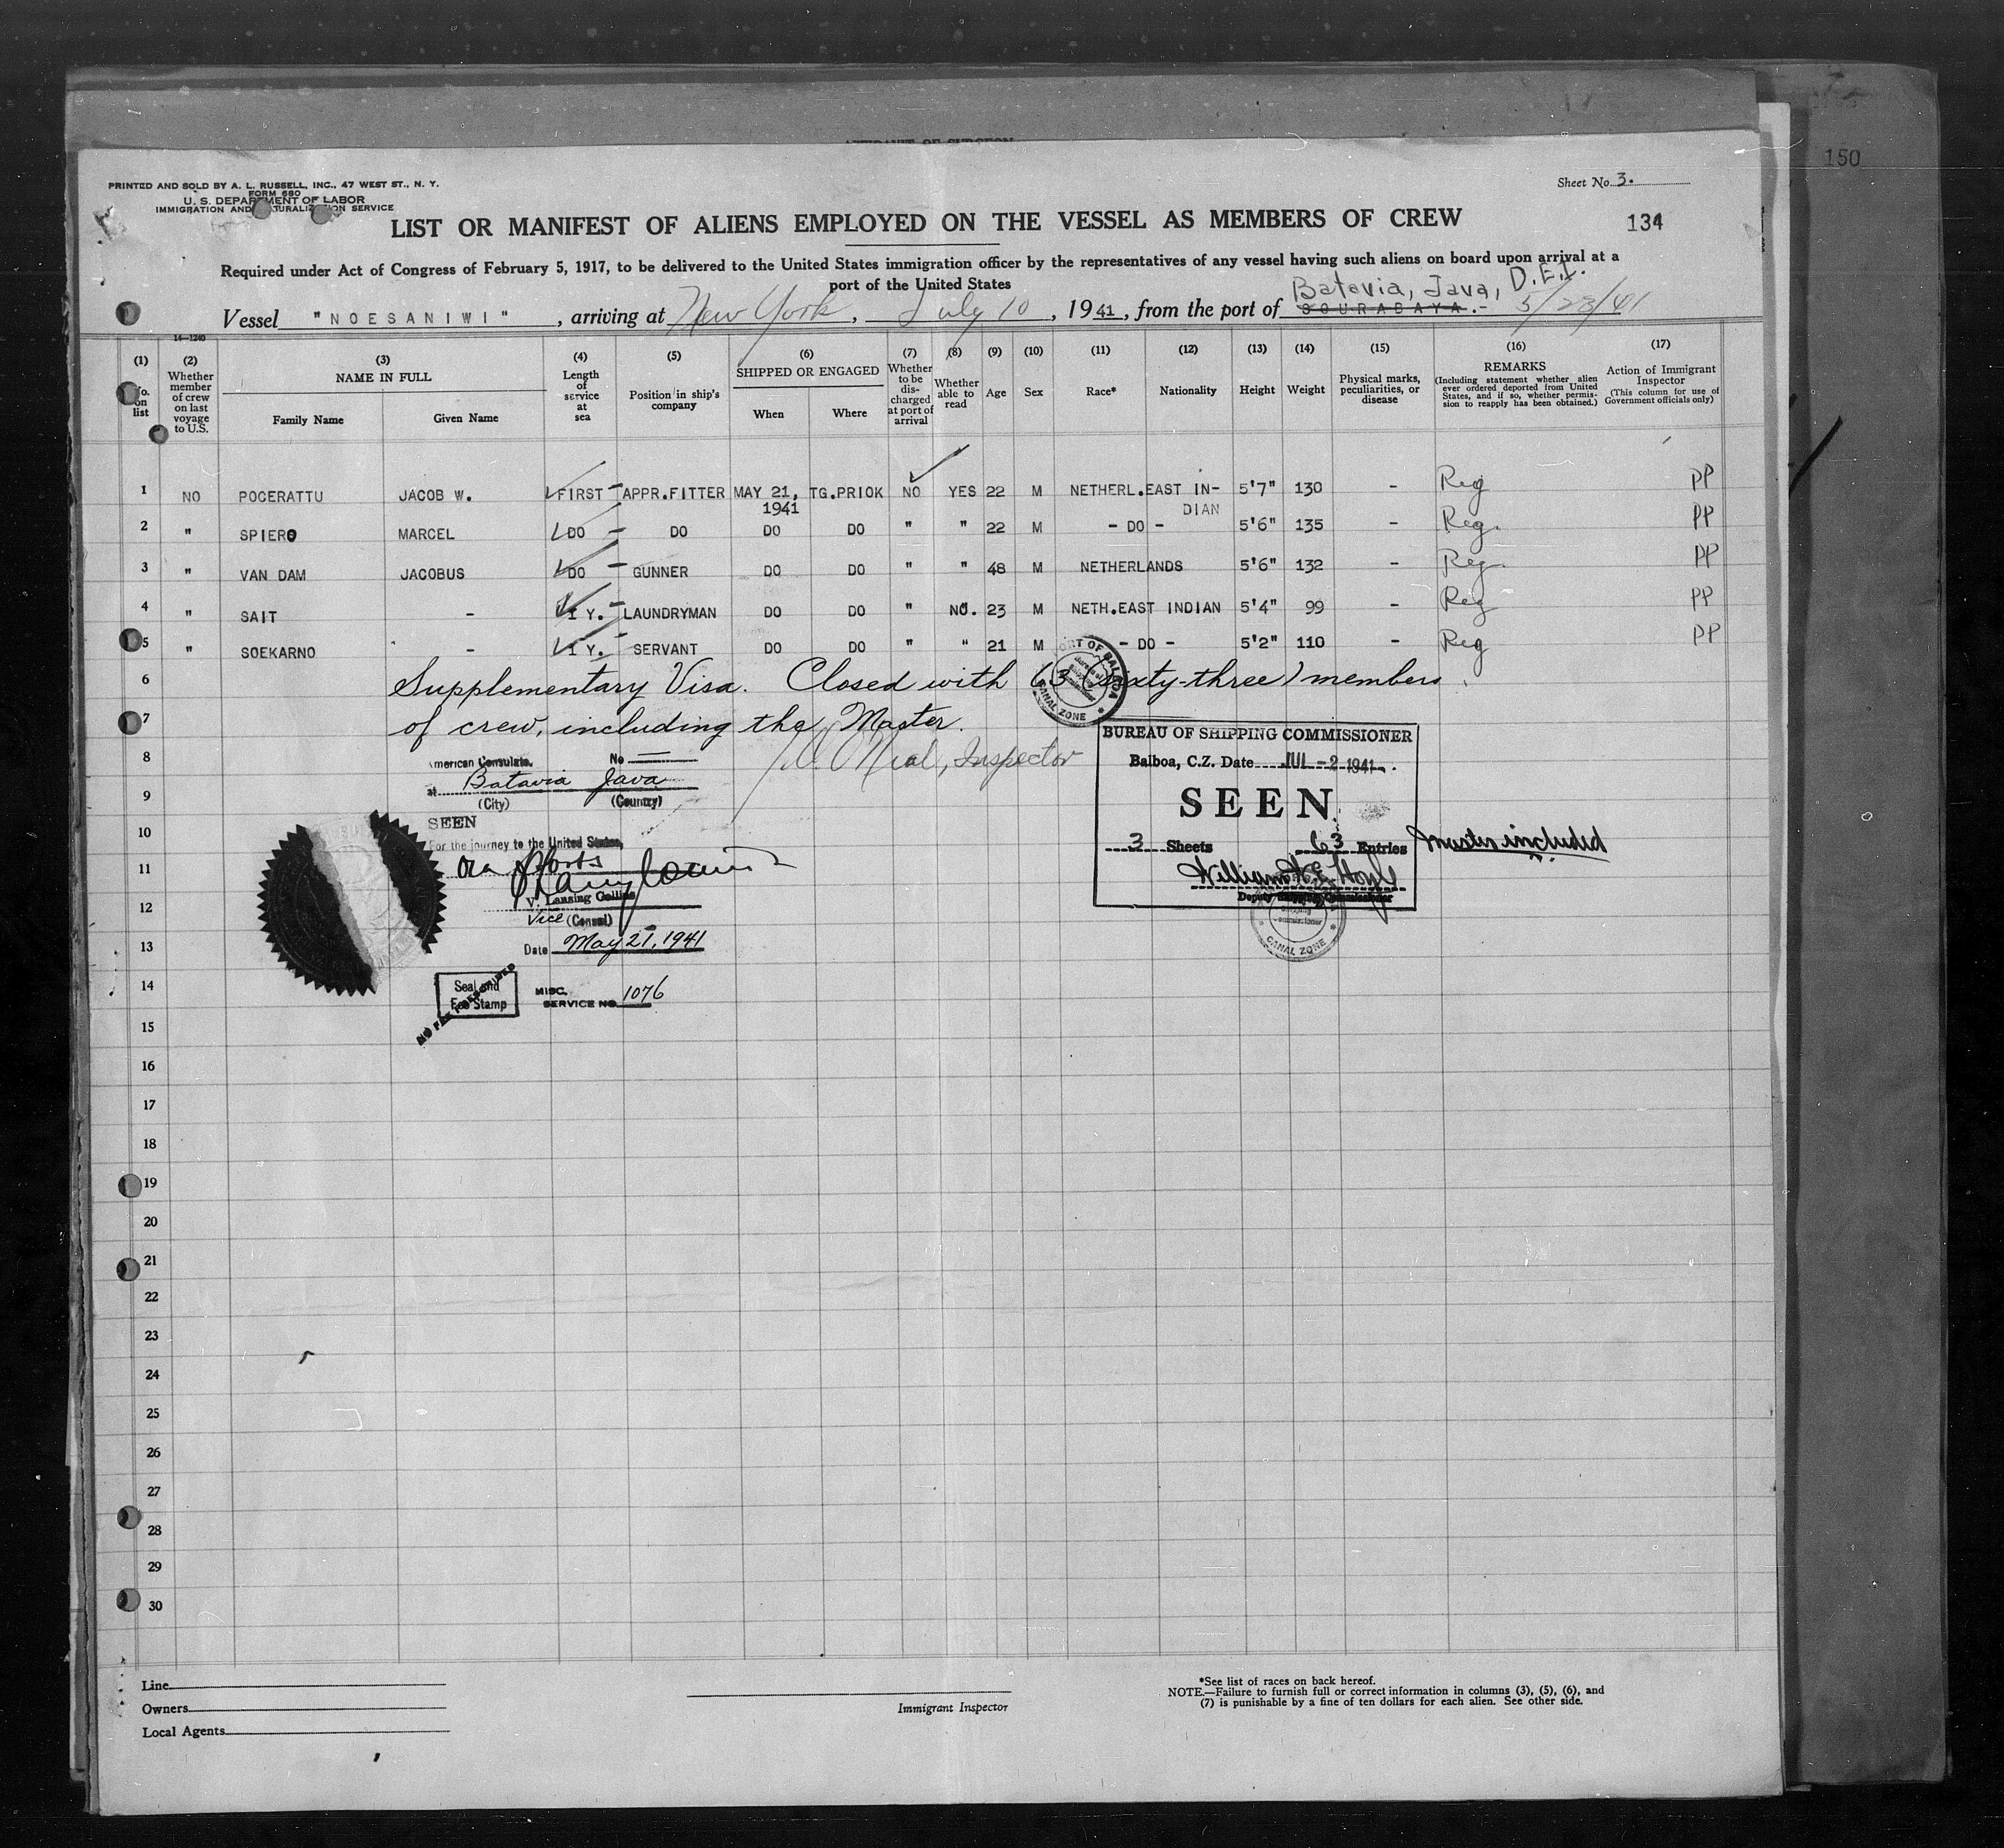 150
PRINTED AND SOLD BY A. L. RUSSELL, INC., 47 WEST ST., N. Y.
FORM 680
U. S. DEPARTMENT OF LABOR
IMMIGRATION AND NATURALIZATION SERVICE
Sheet No. 3.
LIST OR MANIFEST OF ALIENS EMPLOYED ON THE VESSEL AS MEMBERS OF CREW
134
Required under Act of Congress of February 5, 1917, to be delivered to the United States immigration officer by the representatives of any vessel having such aliens on board upon arrival at a
port of the United States
Batavia, Java, D.E.I.
Vessel "NOESANIWI", arriving at New York, July 10, 1941, from the port of SOURABAYA.- 5/23/41
14-1240
(1) (2) (3) (4) (5) (6) (7) (8) (9) (10) (11) (12) (13) (14) (15) (16) (17)
No. on list
Whether member of crew on last voyage to U.S.
NAME IN FULL
Family Name
Given Name
Length of service at sea
Position in ship's company
SHIPPED OR ENGAGED
When
Where
Whether to be discharged at port of arrival
Whether able to read
Age
Sex
Race*
Nationality
Height
Weight
Physical marks, peculiarities, or disease
REMARKS
(Including statement whether alien ever ordered deported from United States, and if so, whether permission to reapply has been obtained.)
Action of Immigrant Inspector
(This column for use of Government officials only)
1 NO POCERATTU JACOB W. FIRST - APPR.FITTER MAY 21, 1941 TG.PRIOK NO YES 22 M NETHERL.EAST INDIAN 5'7" 130 - Reg PP
2 " SPIERO MARCEL DO - DO DO DO " " 22 M - DO - 5'6" 135 - Reg. PP
3 " VAN DAM JACOBUS DO - GUNNER DO DO " " 48 M NETHERLANDS 5'6" 132 - Reg. PP
4 " SAIT - 1 Y. - LAUNDRYMAN DO DO " NO. 23 M NETH.EAST INDIAN 5'4" 99 - Reg PP
5 " SOEKARNO - 1 Y. - SERVANT DO DO " " 21 M - DO - 5'2" 110 - Reg PP
6 Supplementary Visa. Closed with 63 (sixty-three) members
7 of crew, including the Master.
PORT OF BALBOA
CANAL ZONE
8 O'Neal, Inspector
American Consulate. No
at Batavia Java
(City) (Country)
SEEN
For the journey to the United States,
V. Lansing Collins
Vice (Consul)
Date May 21, 1941
Seal and
Fee Stamp
NO FEE PRESCRIBED
MISC.
SERVICE NO. 1076
BUREAU OF SHIPPING COMMISSIONER
Balboa, C.Z. Date JUL -2 1941
SEEN
3 Sheets 63 Entries Master included
William E. Hoyl
Deputy Shipping Commissioner
CANAL ZONE
9
10
11
12
13
14
15
16
17
18
19
20
21
22
23
24
25
26
27
28
29
30
Line
Owners
Local Agents
Immigrant Inspector
*See list of races on back hereof.
NOTE.—Failure to furnish full or correct information in columns (3), (5), (6), and
(7) is punishable by a fine of ten dollars for each alien. See other side.